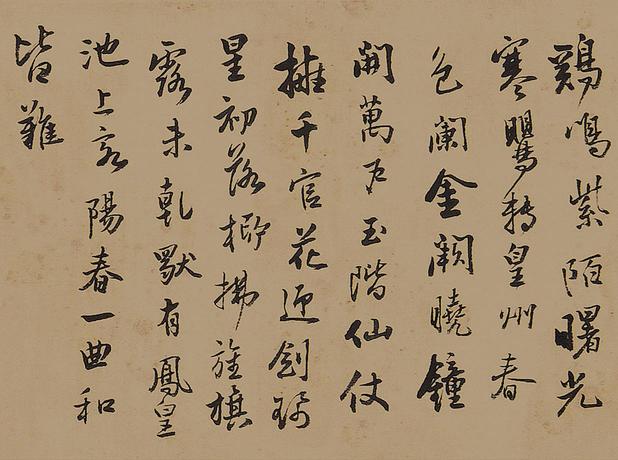 鷄鳴紫陌曙光
寒鶯轉皇州春
色闌金闕曉鐘
開萬户玉階仙仗
擁千官花迎劍珮
星初落柳拂旌旗
露未乾獨有鳳皇
池上客陽春一曲和
皆難